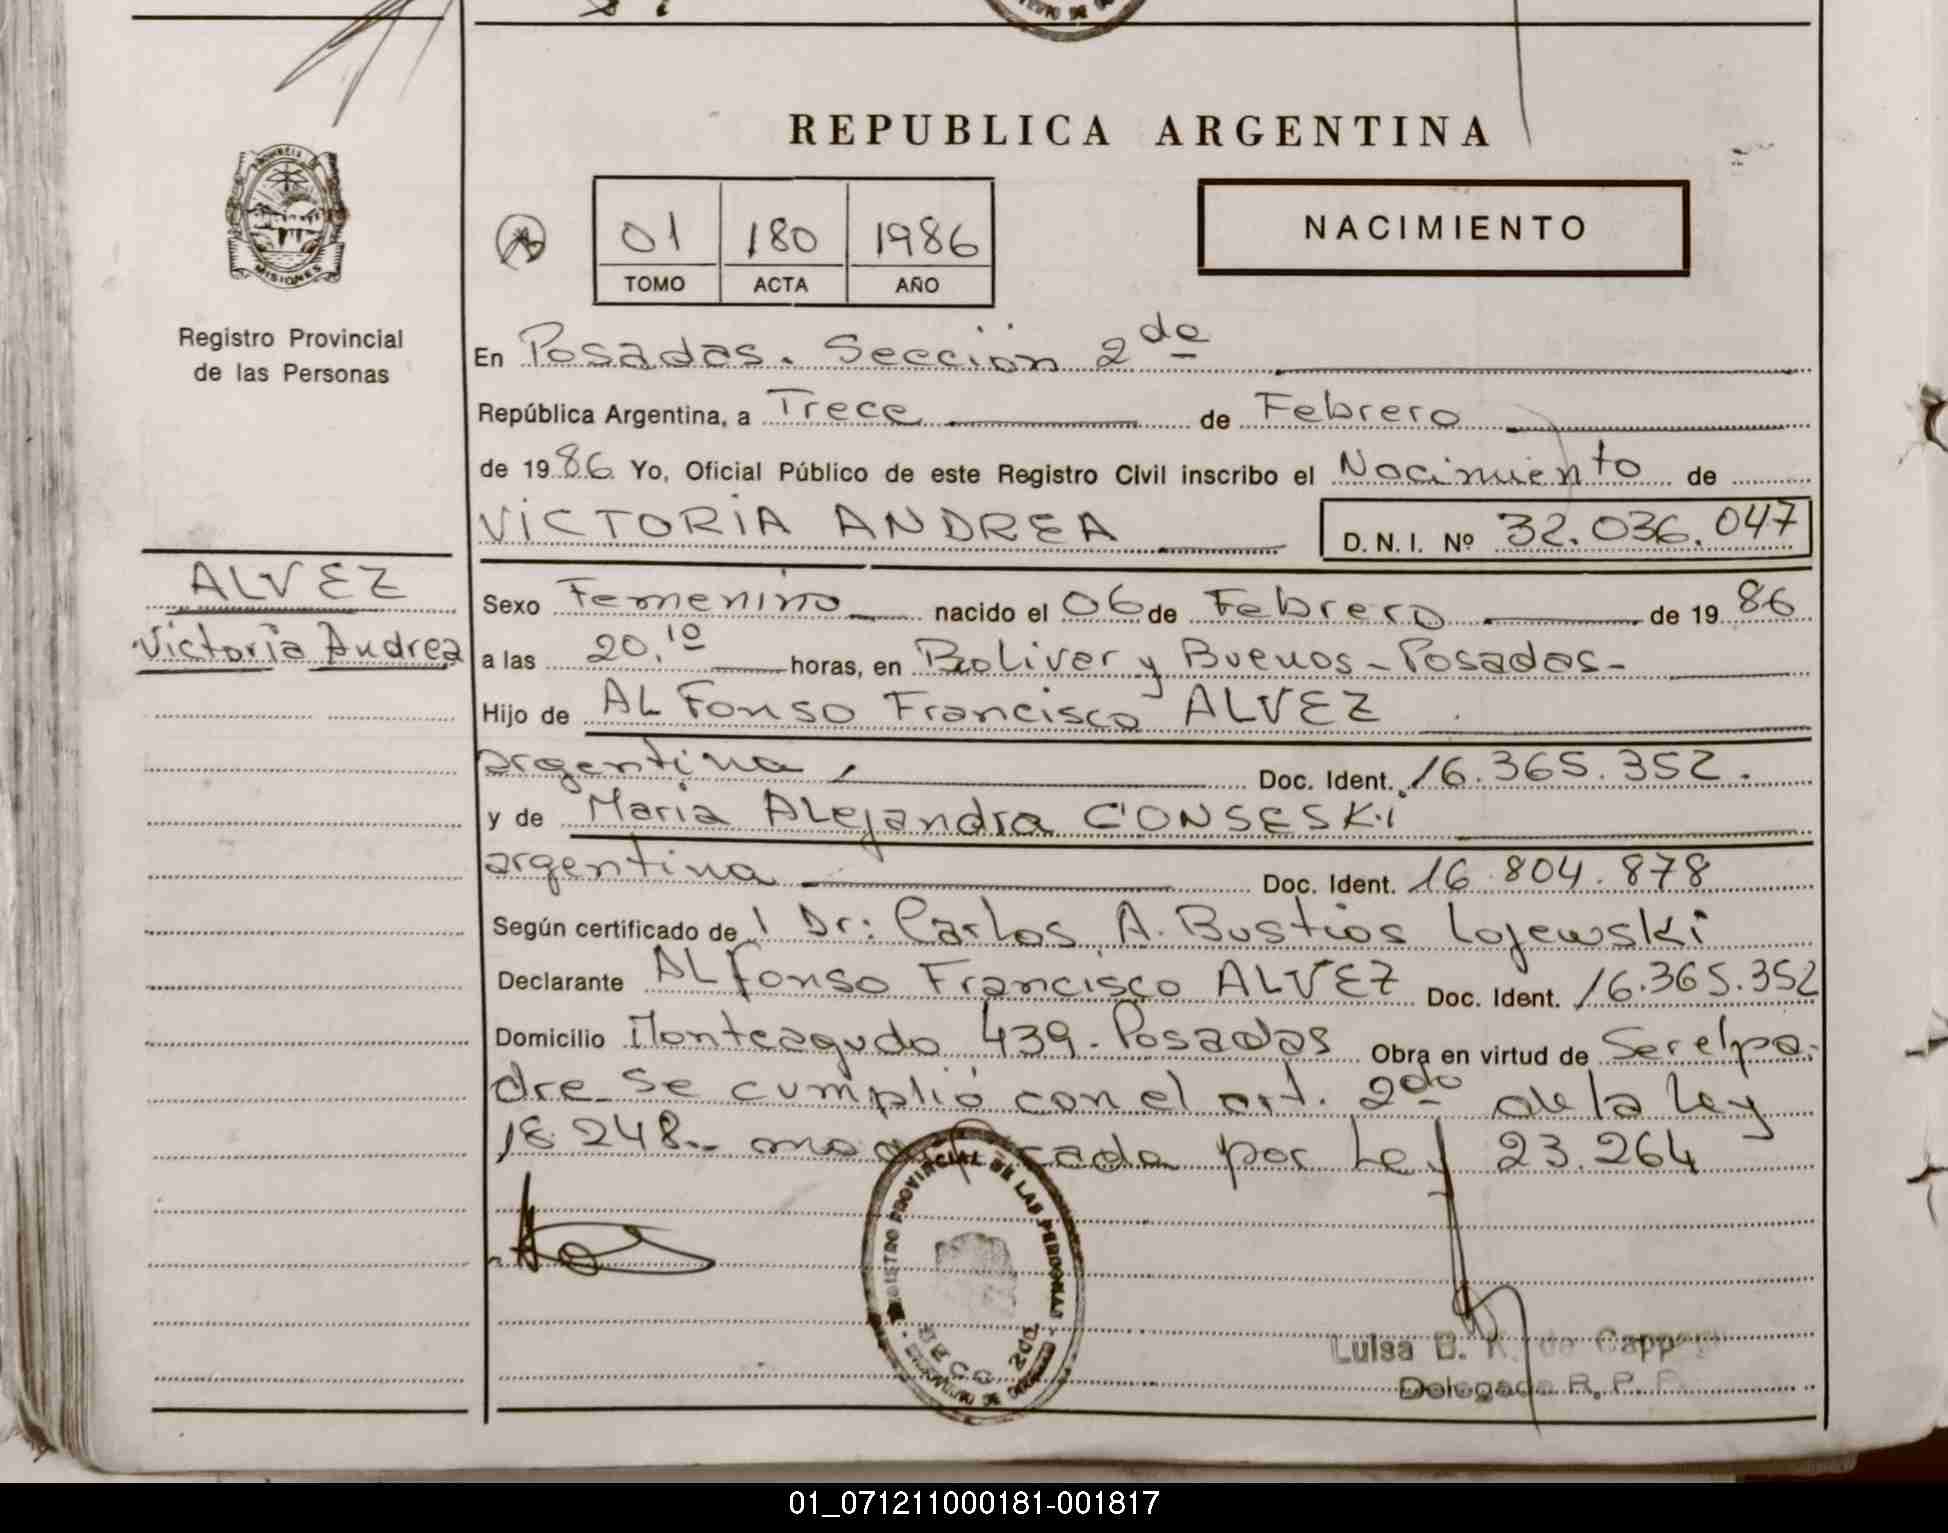 REPUBLICA ARGENTINA
PROVINCIA DE
MISIONES
01 180 1986
TOMO ACTA AÑO
NACIMIENTO
Registro Provincial
de las Personas
En Posadas. Sección 2da
República Argentina, a Trece de Febrero
de 1986 Yo, Oficial Público de este Registro Civil inscribo el Nacimiento de
VICTORIA ANDREA D. N. I. Nº 32.036.047
ALVEZ
Victoria Andrea
Sexo Femenino nacido el 06 de Febrero de 1986
a las 20.10 horas, en Bolivar y Buenos - Posadas-
Hijo de ALFonso Francisco ALVEZ
argentina Doc. Ident. 16.365.352.
y de Maria ALejandra CONSESKi
argentina Doc. Ident. 16.804.878
Según certificado de l Dr: Carlos A. Bustios Lojewski
Declarante ALfonso Francisco ALVEZ Doc. Ident. 16.365.352
Domicilio Monteagudo 439. Posadas Obra en virtud de Ser el pa-
dre. Se cumplió con el art. 2do de la Ley
18.248.- cada por Ley 23.264
REGISTRO PROVINCIAL DE LAS PERSONAS
SECC 2da
Luisa B. K. de
Delegada R. P. P.
01_071211000181-001817